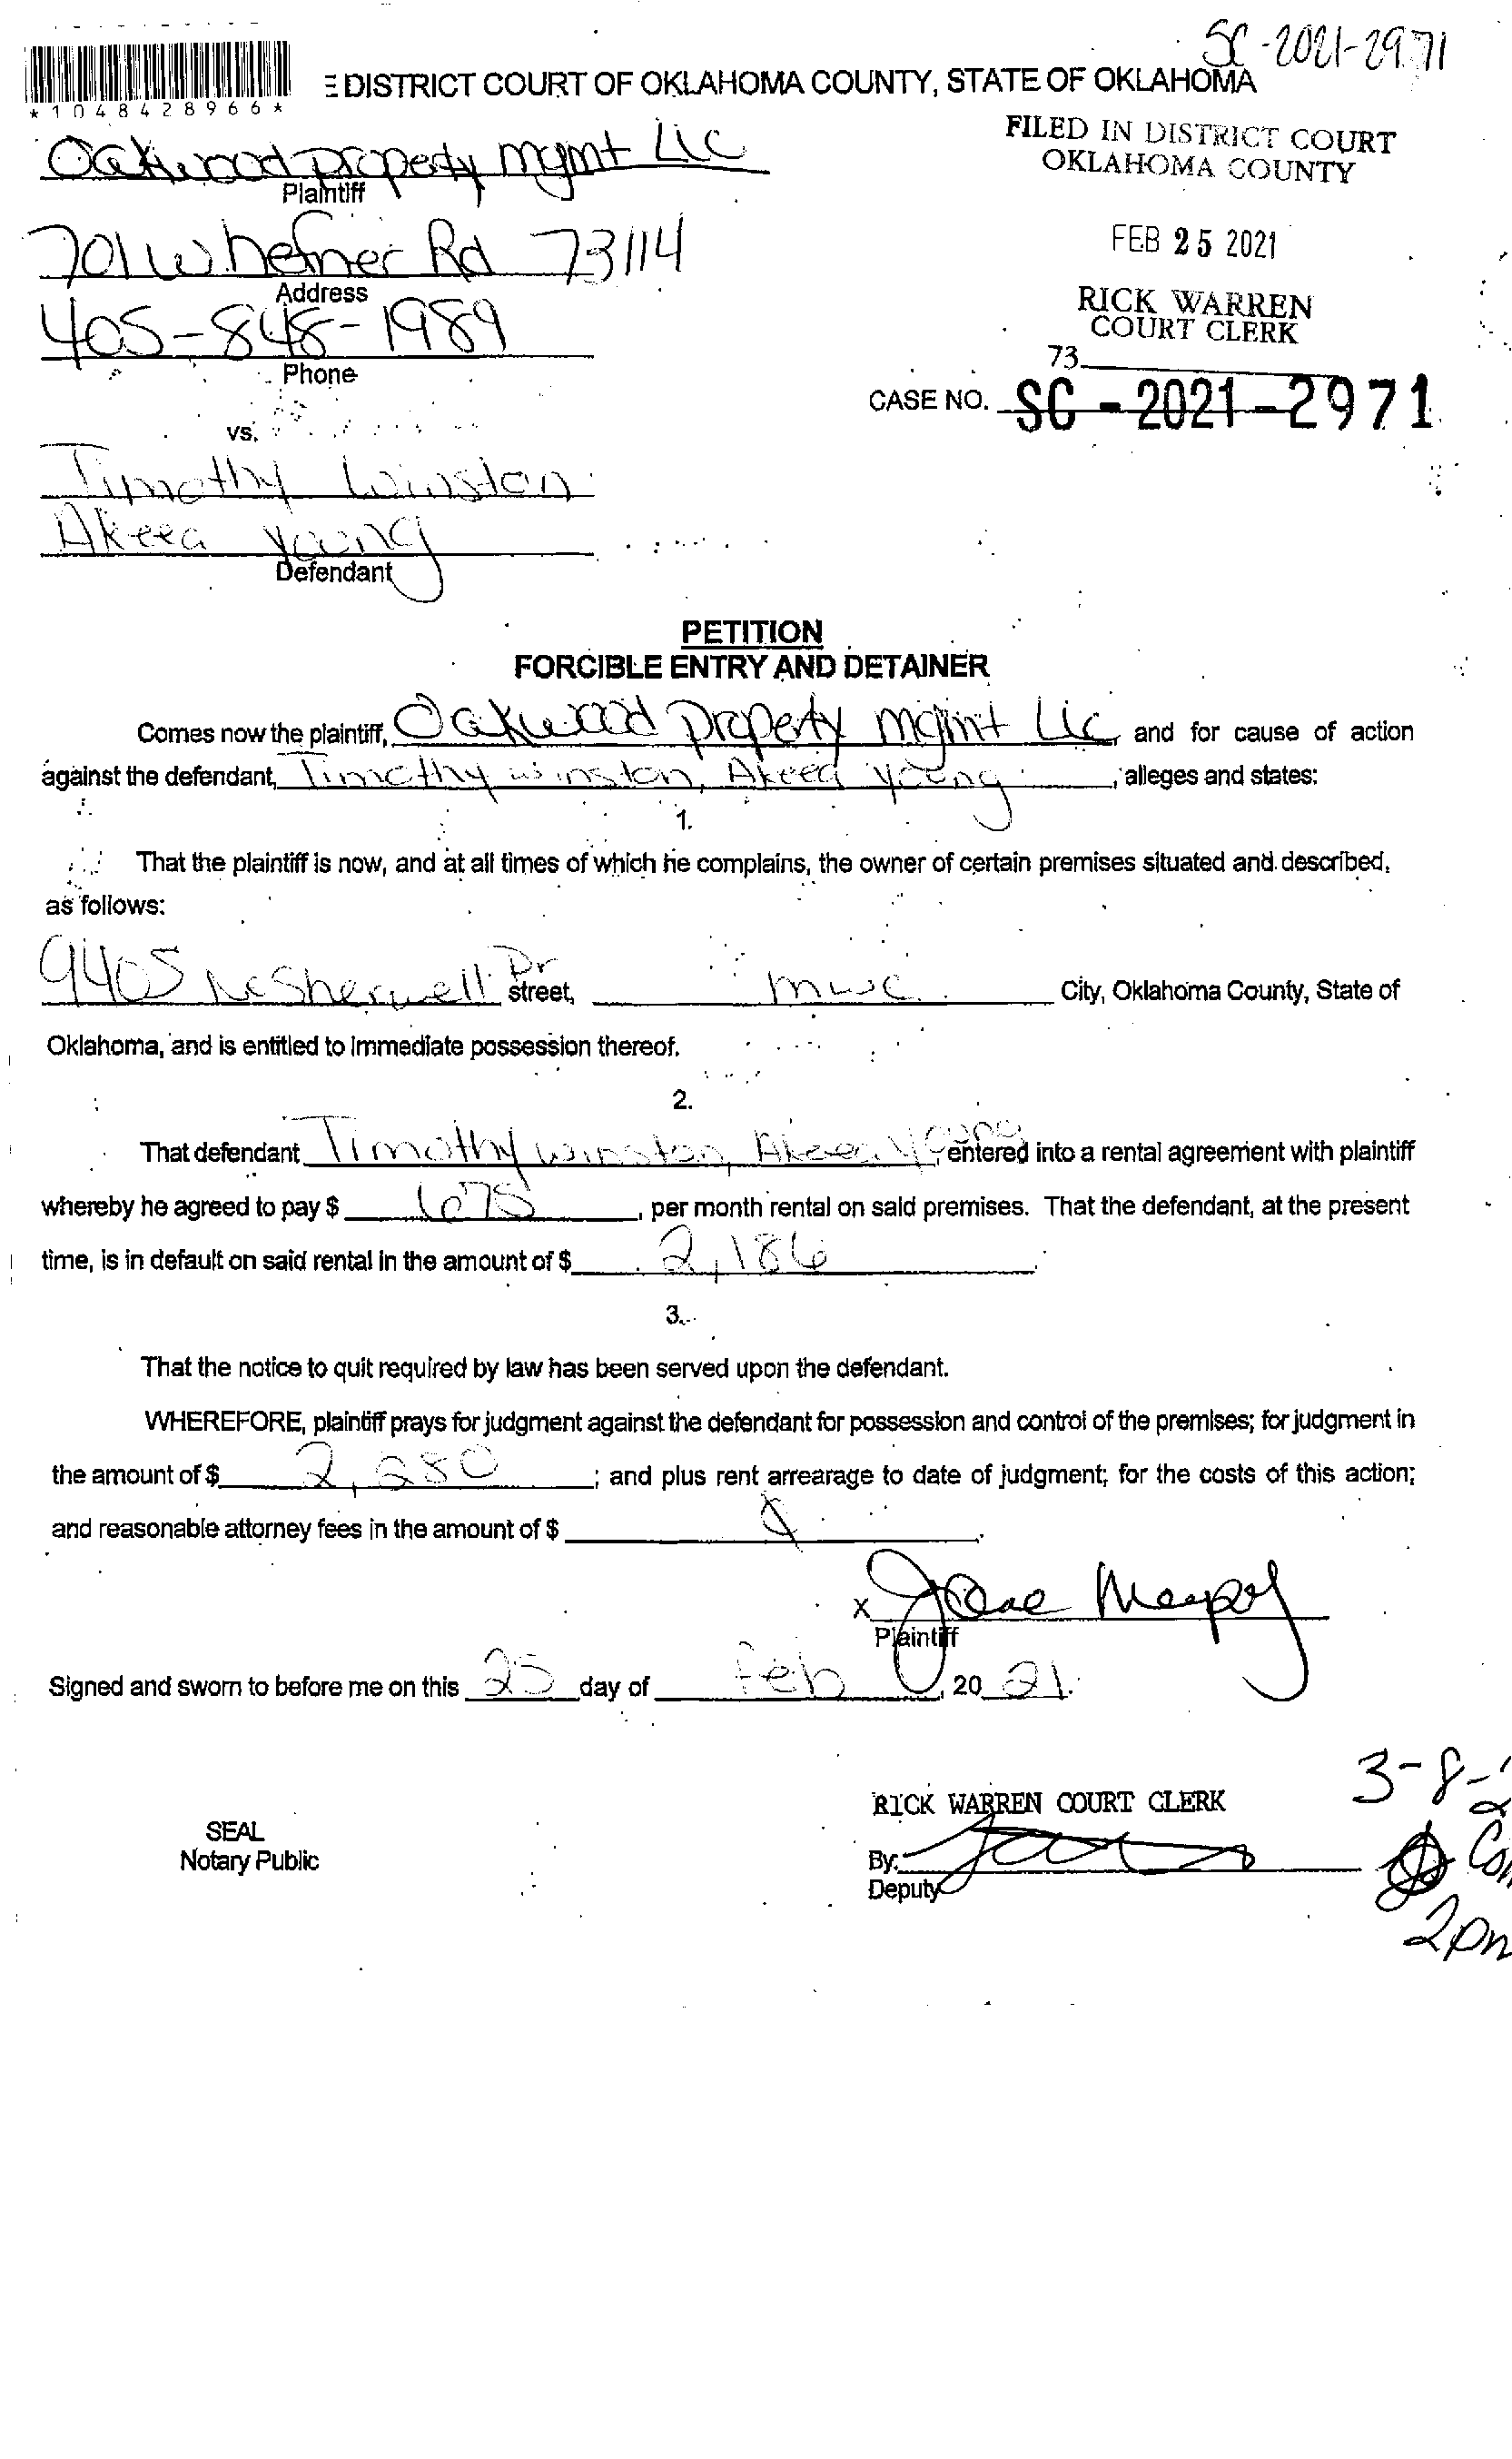 SC-2021-2971
DISTRICT COURT OF OKLAHOMA COUNTY, STATE OF OKLAHOMA
*1048428966*
Oakwood Property mgmt LLC
Plaintiff
FILED IN DISTRICT COURT
OKLAHOMA COUNTY
701 W. hefner Rd 73114
Address
FEB 25 2021
405-848-1989
Phone
RICK WARREN
COURT CLERK
73
CASE NO. SC-2021-2971
vs.
Timothy Winston
Akeea Young
Defendant
PETITION
FORCIBLE ENTRY AND DETAINER
Comes now the plaintiff, Oakwood Property mgmt LLC, and for cause of action
against the defendant, Timothy winston, Akeea young, alleges and states:
1.
That the plaintiff is now, and at all times of which he complains, the owner of certain premises situated and described,
as follows:
9405 NE Sherwell Dr street, mwc City, Oklahoma County, State of
Oklahoma, and is entitled to immediate possession thereof.
2.
That defendant Timothy winston, Akeea Young, entered into a rental agreement with plaintiff
whereby he agreed to pay $ 675, per month rental on said premises. That the defendant, at the present
time, is in default on said rental in the amount of $ 2,186.
3.
That the notice to quit required by law has been served upon the defendant.
WHEREFORE, plaintiff prays for judgment against the defendant for possession and control of the premises; for judgment in
the amount of $ 2,280; and plus rent arrearage to date of judgment; for the costs of this action;
and reasonable attorney fees in the amount of $
X
Plaintiff
Signed and sworn to before me on this 25 day of feb, 20 21.
3-8-2
RICK WARREN COURT CLERK
SEAL
Notary Public
By:
Deputy
2pm